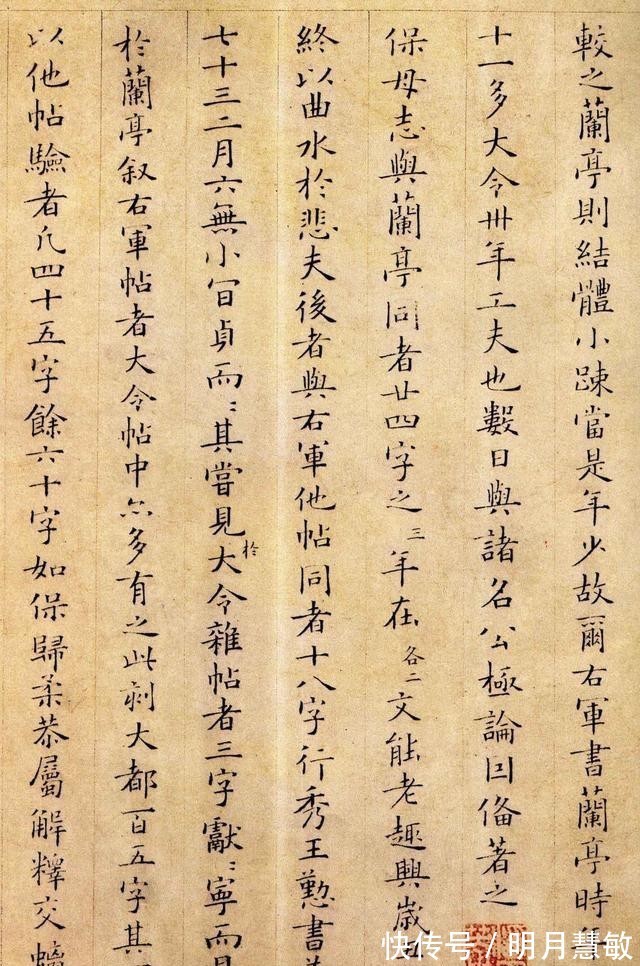 較之蘭亭則結體小踈當是年少故爾右軍書蘭亭時
十一多大令卅年工夫也數日與諸名公極論因俻著之
保母志與蘭亭同者廿四字之三年在各二文能老趣興歲
終以曲水於悲夫後者與右軍他帖同者十八字行秀王懃書
七十三二月六無小貞而〻其嘗見於大令雜帖者三字獻〻寧而見
於蘭亭叙右軍帖者大令帖中亦多有之此刻大都一百五字其
以他帖驗者凡四十五字餘六十字如保歸柔恭屬解釋交螭
快传号 / 明月慧敏